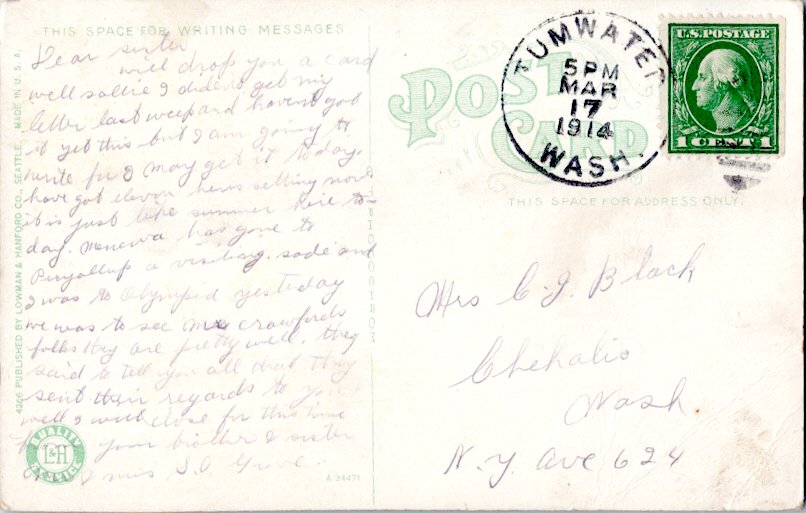 THIS SPACE FOR WRITING MESSAGES
Dear sister
will drop you a card
well sallie I diden get my
letter last weep and havent got
it yet this but I am going to
write for I may get it today.
have got eleven hens setting now
it is just like summer here to-
day. Menerva has gone to
Puyallup a visiting. sade and
I was to Olympia yesterday
we was to see Mrs crawfords
folks they are pretty well. they
said to tell you all that they
sent their regards to you
well I will close for this time
your brother & sister
mrs S.O. Grove.
4266 PUBLISHED BY LOWMAN & HANFORD CO., SEATTLE. MADE IN U.S.A.
QUALITY
L&H
A 34471
POST
CARD
TUMWATER
5PM
MAR
17
1914
WASH.
U.S. POSTAGE
1 CENT 1
THIS SPACE FOR ADDRESS ONLY.
Mrs C. J. Black
Chehalis
Wash
N.Y. Ave 624